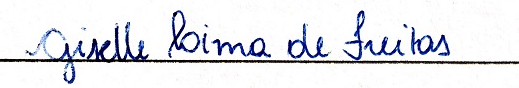 Giselle Lima de Freitas